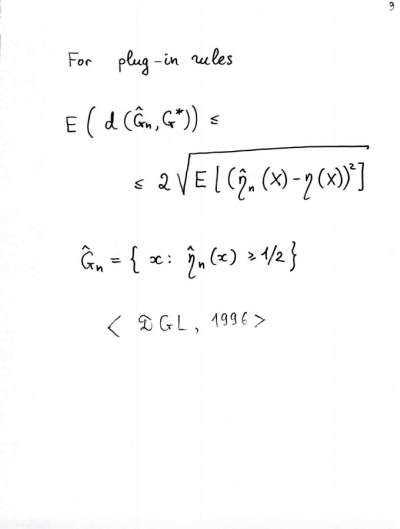 9
For plug-in rules
E ( d (Ĝₙ, G*)) ≤
≤ 2 √E [ (η̂ₙ (X) - η (X))² ]
Ĝₙ = { x : η̂ₙ (x) ≥ 1/2 }
< DGL, 1996 >